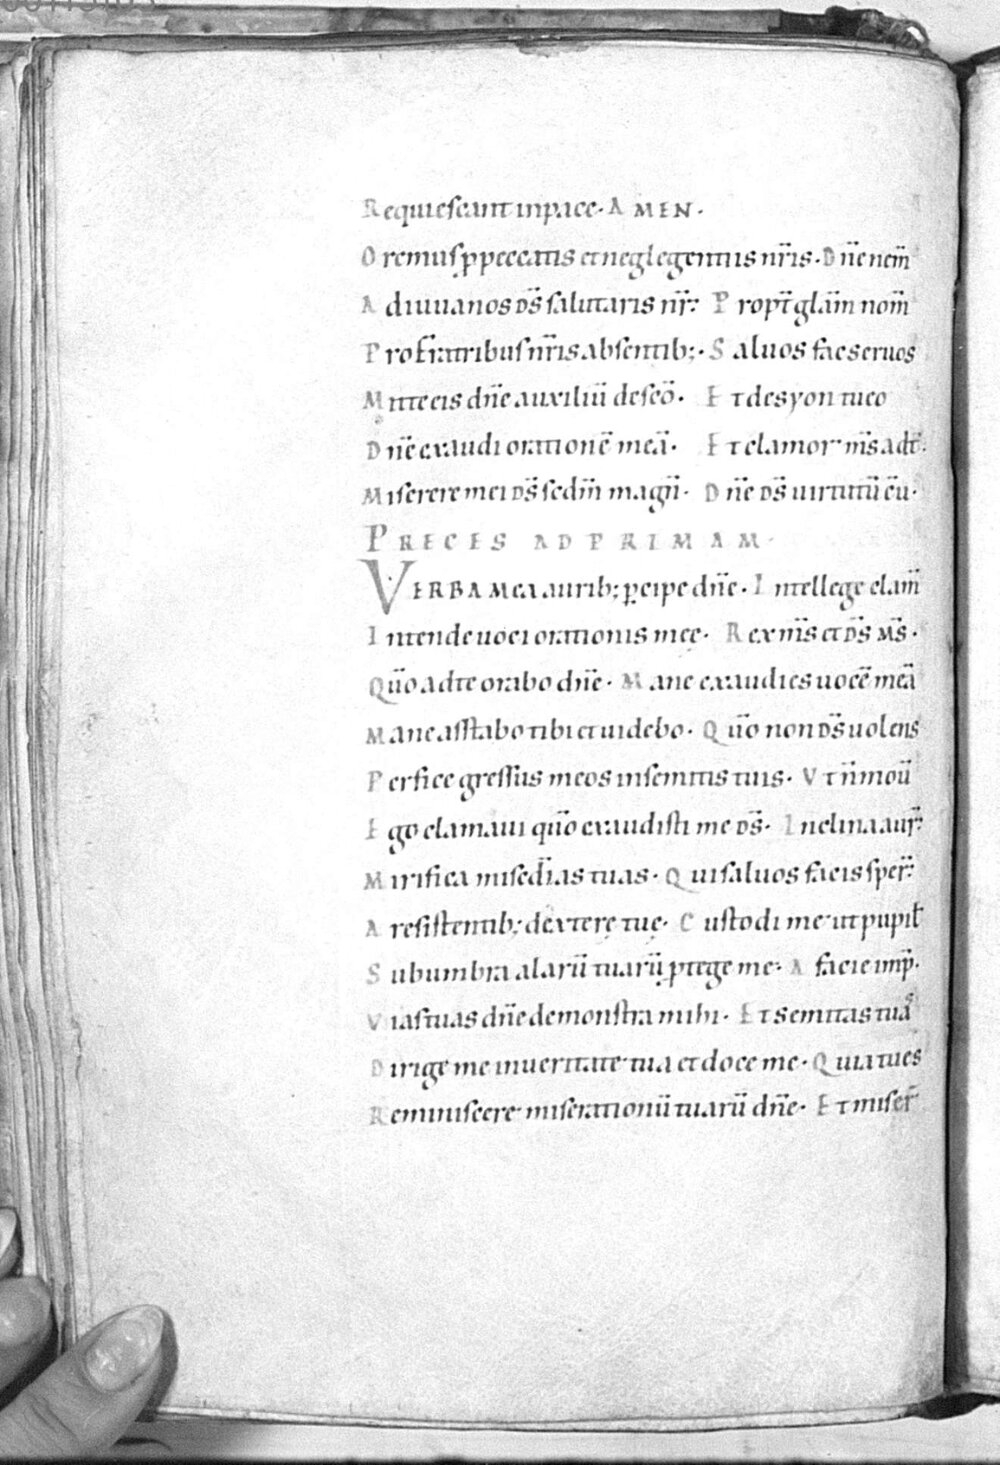 Requiescant inpace· AMEN·
Oremus p̱ peccatis et neglegentiis nr̄is· Dn̄e nem̄
Adiuuanos ds̄ salutaris nr̄: Propt̄ glām nom̄
Pro fr̄atribus nr̄is absentib;· Saluos fac seruos
Mitte eis dn̄e auxiliū de sc̄o· Et desyon tueo
Dn̄e exaudi orationē meā· Et clamor ms̄ adt̄·
Miserere mei ds̄ scdm̄ magn̄· Dn̄e ds̄ uirtutū c̄u·
PRECES AD PRIMAM·
VERBA Mea aurib; p̱cipe dn̄e· Intellege clam̄
Intende uoci orationis meę· Rex ms̄ et ds̄ ms̄·
Qūo ad te orabo dn̄e· Mane exaudies uocē meā
Mane asstabo tibi et uidebo· Qūo non ds̄ uolens
Perfice gressus meos insemitis tuis· Vt n̄ mou̅
Ego clamaui qūo exaudisti me ds̄· Inclina aur̄:
Mirifica misēdias tuas· Qui saluos facis sper̄:
A resistentib; dexterę tuę· Custodi me ut pupil̄
Sub umbra alarū tuarū p̱tege me· A facie imp̄·
Vias tuas dn̄e demonstra mihi· Et semitas tuas
Dirige me inueritate tua et doce me· Quia tu es
Reminiscere miserationū tuarū dn̄e· Et miser̄